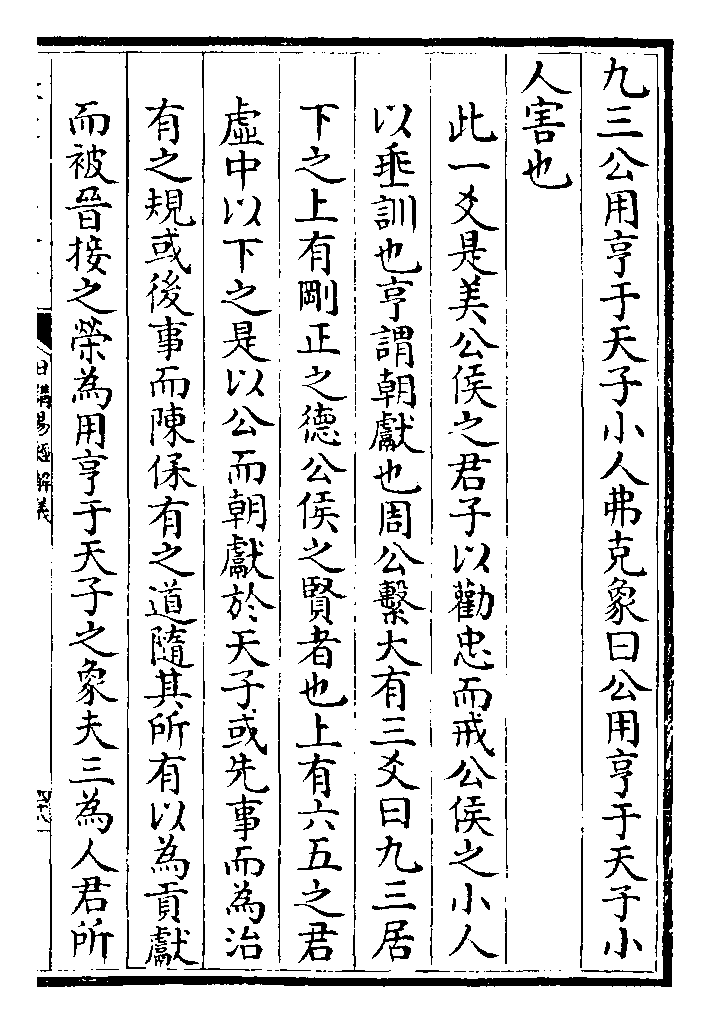 九三公用亨于天子小人弗克象曰公用亨于天子小
人害也
此一爻是美公侯之君子以勸忠而戒公侯之小人
以垂訓也亨謂朝獻也周公繫大有三爻曰九三居
下之上有剛正之德公侯之賢者也上有六五之君
虛中以下之是以公而朝獻於天子或先事而為治
有之規或後事而陳保有之道隨其所有以為貢獻
而被晉接之榮為用亨于天子之象夫三為人君所
日講易經解義